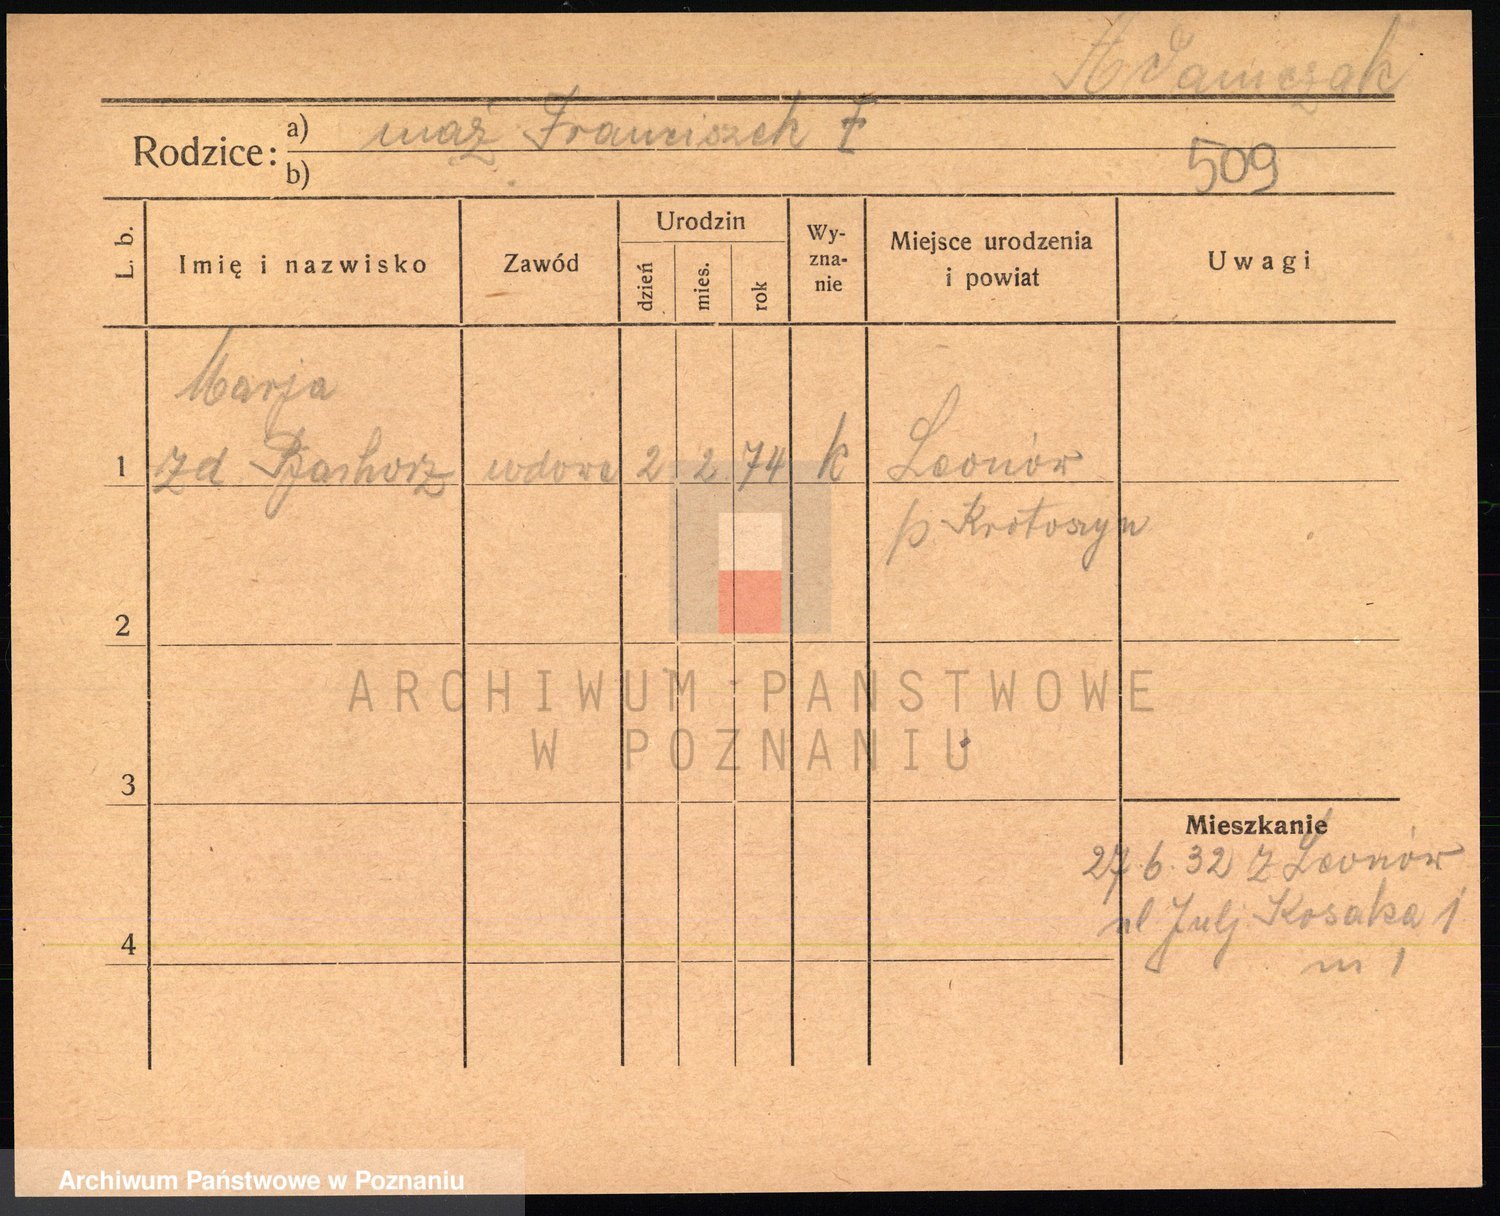 Adamczak
Rodzice: a) mąż Franciszek
b)
509
L. b.
Imię i nazwisko
Zawód
Urodzin
dzień
mies.
rok
Wy-
zna-
nie
Miejsce urodzenia
i powiat
Uwagi
Marja
1 zd wdowa 2 2 74 k Leonów
p Krotoszyn
2
3
4
Mieszkanie
27.6.32 z Leonów
ul Julj. Kosaka 1
m 1
ARCHIWUM PAŃSTWOWE
W POZNANIU
Archiwum Państwowe w Poznaniu